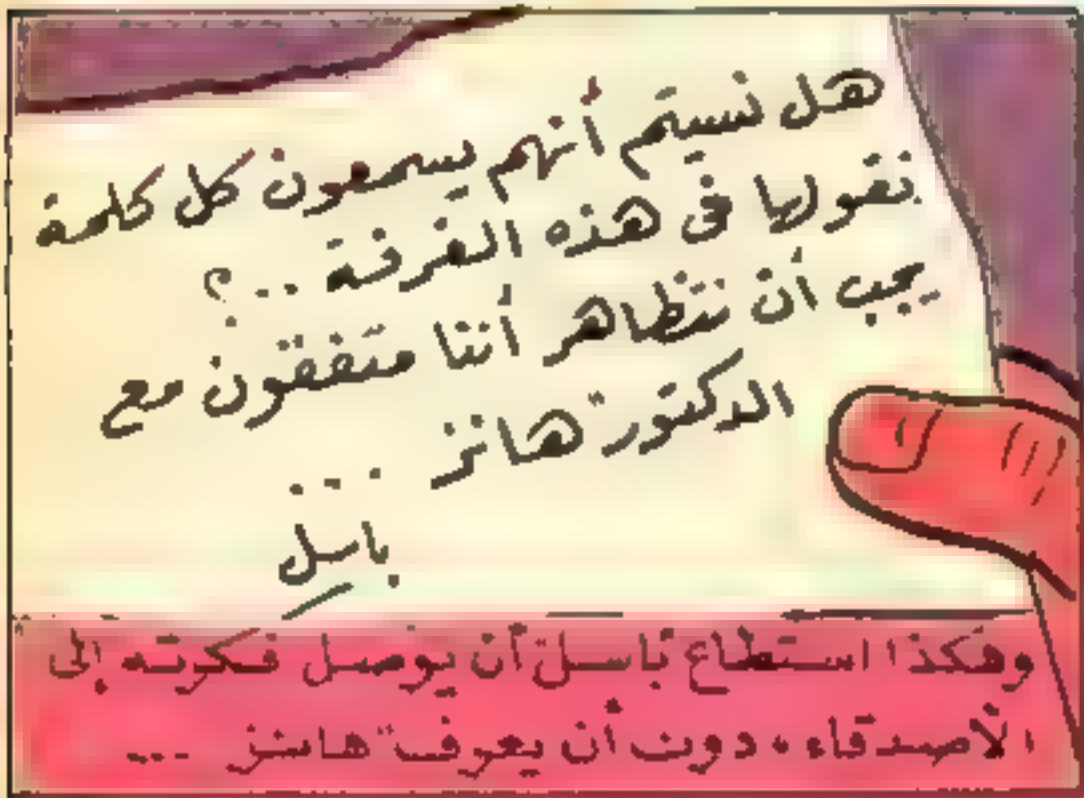 هل نسيتم أنهم يسمعون كل كلمة
نقولها فى هذه الغرفة ..؟
يجب أن نتظاهر أننا متفقون مع
الدكتور "هانز ...
باسل
وهكذا استطاع "باسل" أن يوصل فكرته إلى
الأصدقاء، دون أن يعرف "هانز ...